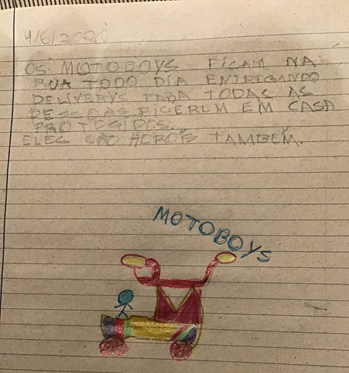 4/6/2020
OS MOTOBOYS FICAM NA
RUA TODO DIA ENTREGANDO
DELIVERYS PARA TODAS AS
PESSOAS FICEREM EM CASA
PROTEGIDOS.
ELES SÃO HEROIS TAMBÉM.
MOTOBOYS